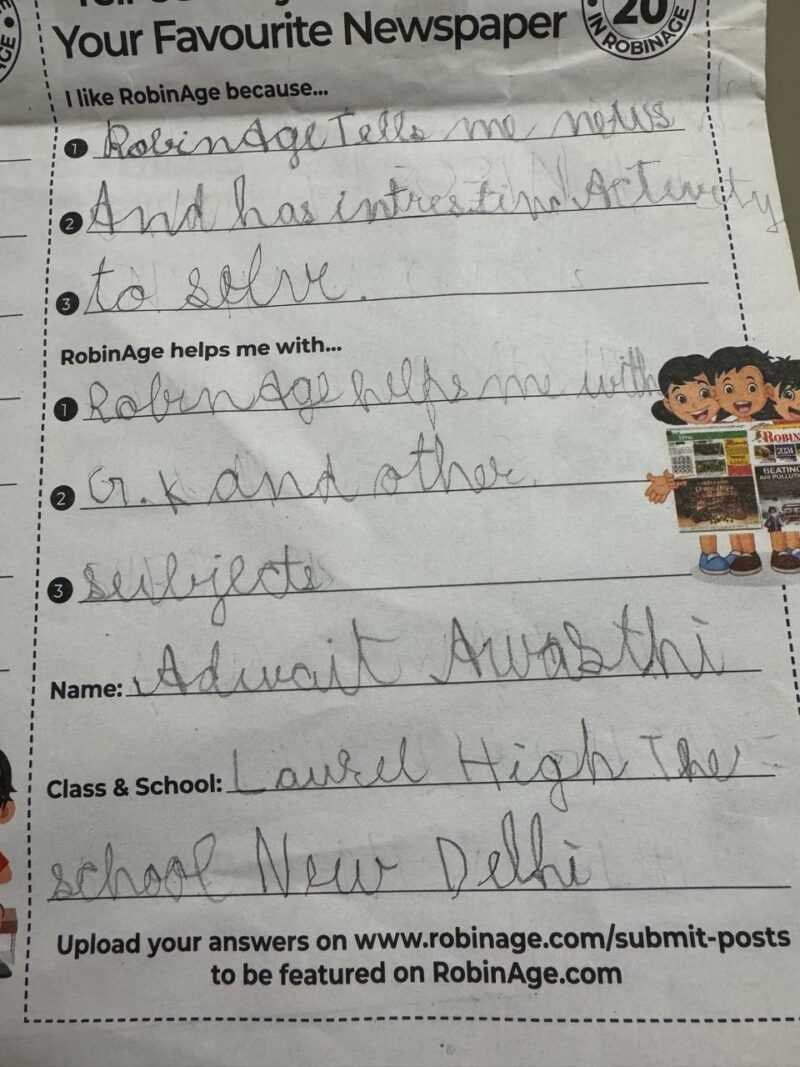 Your Favourite Newspaper
20
IN ROBINAGE
I like RobinAge because...
1 RobinAge Tells me news
2 And has intrestind Activity
3 to solve.
RobinAge helps me with...
1 RobinAge helps me with
2 G.K and other
3 subjects
Name: Adwait Awasthi
Class & School: Laurel High The
school New Delhi
Upload your answers on www.robinage.com/submit-posts
to be featured on RobinAge.com